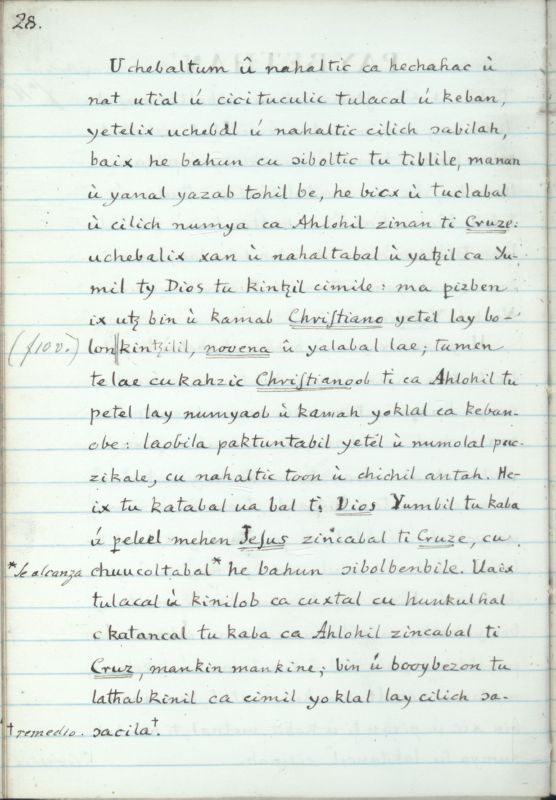 28.
Uchebaltum û nahaltic ca hechahac ù
nat utial ú cicituculic tulacal ú keban,
yetelix uchebal ú nahaltic cilich sabilah,
baix he bahun cu siboltic tu tiblile, manan
ù yanal yazab tohil be, he bicx ù tuclabal
ù cilich numya ca Ahlohil zinan ti Cruze:
uchebalix xan ù nahaltabal ù yatzil ca Yu-
mil ty Dios tu kintzil cimile: ma pizben
ix utz bin ù kamab Chriſtiano yetel lay bo-
(f10v.) lon kintzilil, novena û yalabal lae; tumen
telae cukahzic Chriſtianoob ti ca Ahlohil tu
petel lay numyaob ù kamah yoklal ca keban-
obe: laobila paktuntabil yetel ù numolal puc-
zikale, cu nahaltic toon ù chichil antah. He-
ix tu katabal ua bal ti Dios Yumbil tu kaba
ú peleel mehen Jeſus zincabal ti Cruze, cu
*se alcanza chuucoltabal* he bahun sibolbenbile. Uaix
tulacal ù kinilob ca cuxtal cu hunkulhal
c katancal tu kaba ca Ahlohil zincabal ti
Cruz, mankin mankine; bin ú booybezon tu
lathab kinil ca cimil yoklal lay cilich sa-
†remedio. sacila†.